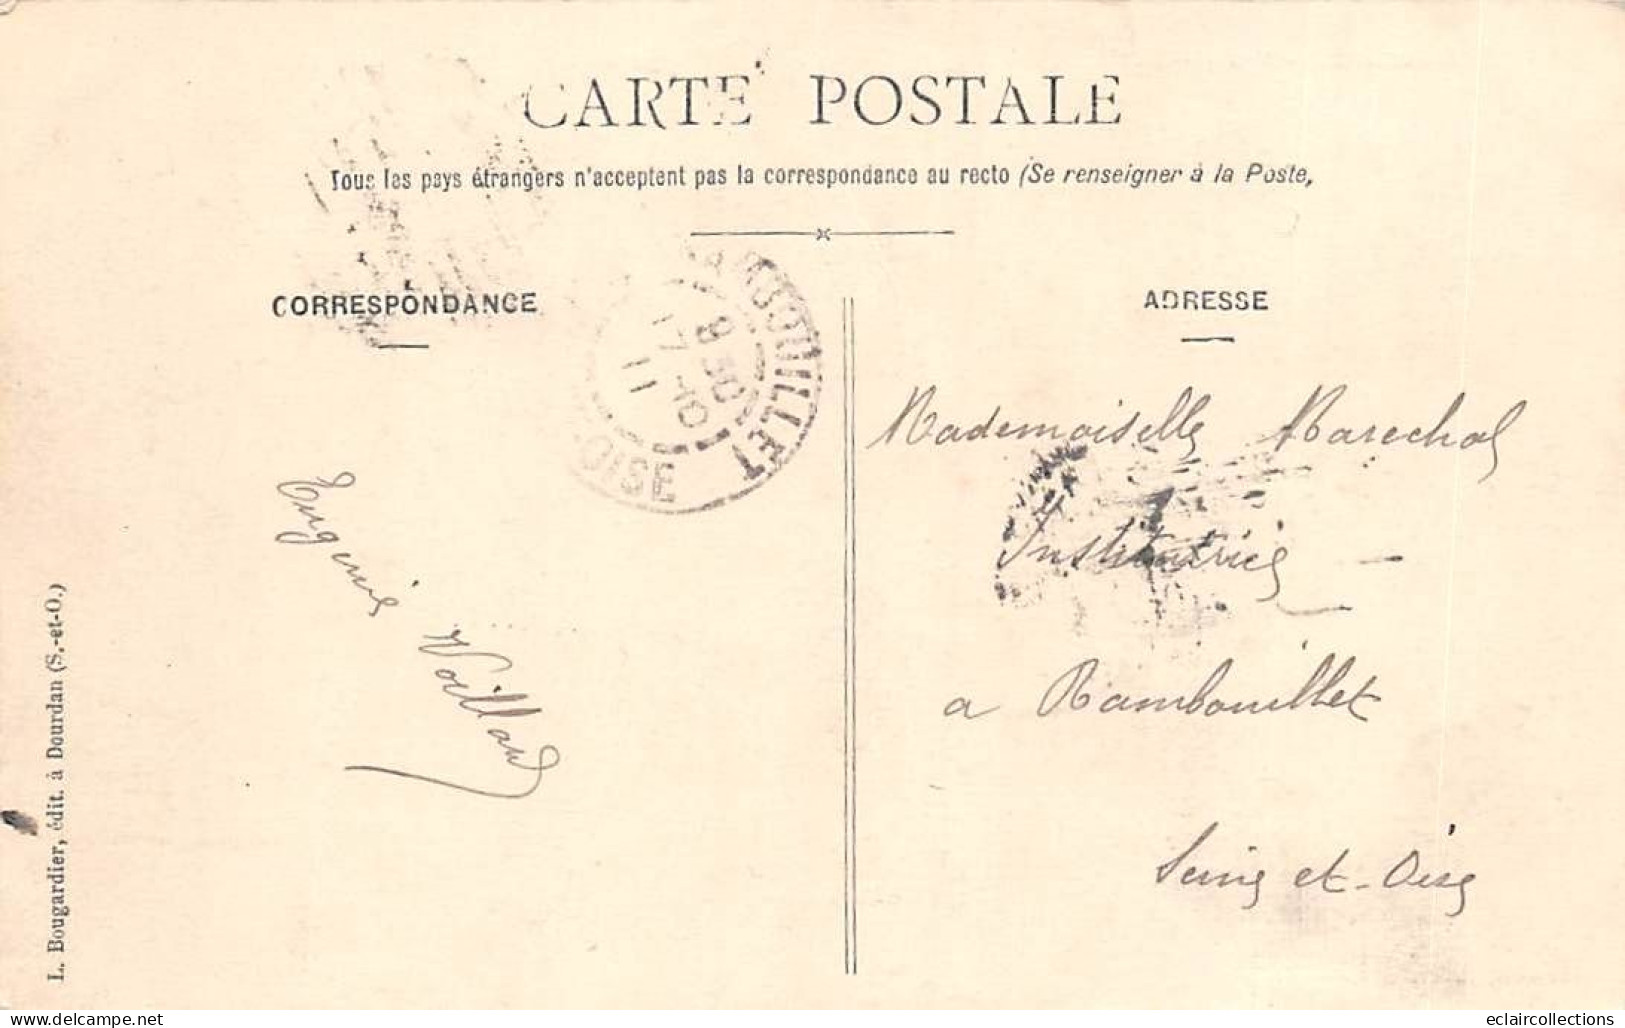 CARTE POSTALE
Tous les pays étrangers n'acceptent pas la correspondance au recto (Se renseigner à la Poste,
CORRESPONDANCE
ADRESSE
RAMBOUILLET
8 30
17 -10
11
OISE
Mademoiselle Marechal
Institutrice
a Rambouillet
Seine et-Oise
Eugenie Voillard
L. Bougardier, édit. à Dourdan (S.-et-O.)
delcampe.net
eclaircollections